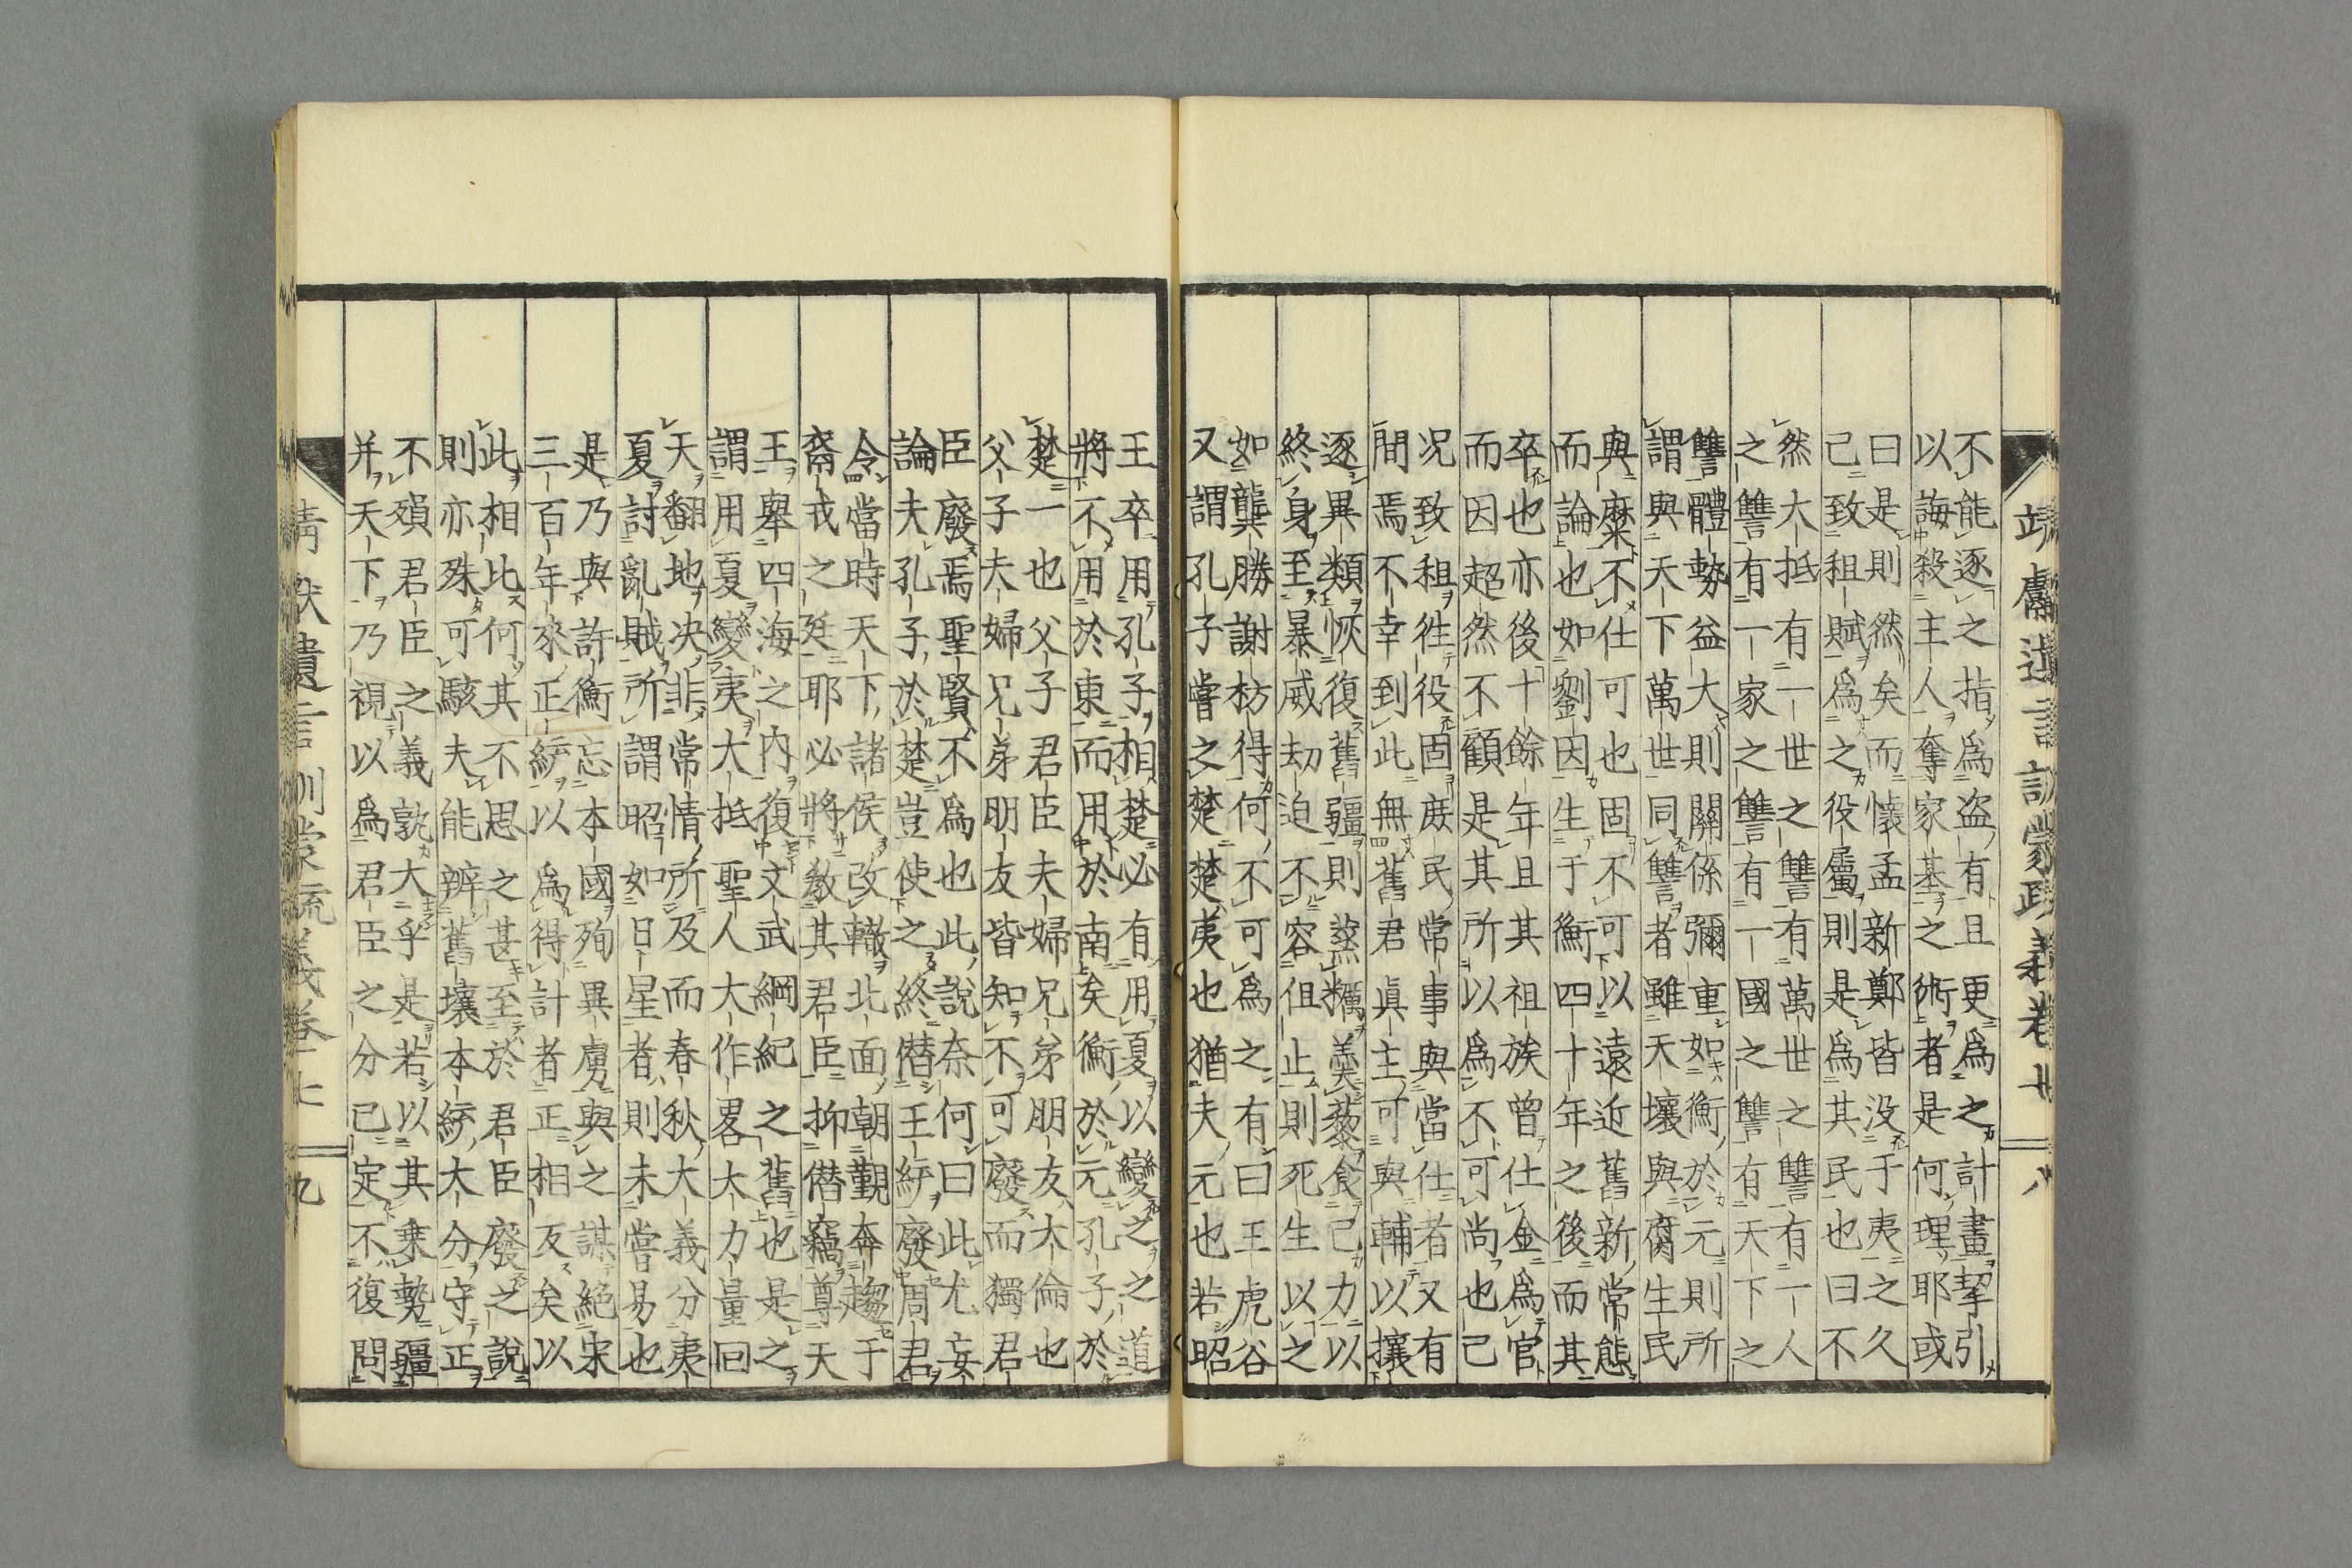 不能逐之指爲盗有且更爲之計畫挈引
以誨殺主人奪家基之術者是何理耶或
曰是則然矣而懐孟新鄭皆没于夷之久
己致租賦爲之役屬則是爲其民也曰不
然大抵有一世之讐有萬世之讐有一人
之讐有一家之讐有一國之讐有天下之
讐體勢益大則關係彌重如衡於元則所
謂與天下萬世同讐者雖天壤與腐生民
與糜不仕可也固不可以遠近舊新常態
而論也如劉因生于衡四十年之後而其
卒也亦後十餘年且其祖族曾仕金爲官
而因超然不顧是其所以爲不可尚也己
况致租徃役固庶民常事與當仕者又有
間焉不幸到此無舊君眞主可與輔以攘
逐異類恢復舊疆則蒸糲羹藜食己力以
終身至暴威刧迫不容但止則死生以之
如龔勝謝枋得何不可爲之有曰王虎谷
又謂孔子嘗之楚楚夷也猶夫元也若昭
王卒用孔子相楚必有用夏以變之之道
將不用於東而用於南矣衡於元孔子於
楚一也父子君臣夫婦兄弟朋友大倫也
父子夫婦兄弟朋友皆知不可廢而獨君
臣廢焉聖賢不爲也此說奈何曰此尤妄
論夫孔子於楚豈使之終僭王綍廢周君
令當時天下諸侯改轍北面朝覲奔趨于
裔戎之廷耶必將教其君臣抑僭竊尊天
王舉四海之内復文武綱紀之舊也是之
謂用夏變夷大抵聖人大作畧大力量回
天翻地决非常情所及而春秋大義分夷
夏討亂賊所謂昭如日星者則未嘗易也
是乃與許衡忘本國殉異虜與之謀絕宋
三百年來正綂以爲得計者正相反矣以
此相比何其不思之甚至於君臣廢之說
則亦殊可駭夫能辨舊壤本綂大分守正
不殞君臣之義孰大乎是若以其乗勢疆
并天下乃視以爲君臣之分己定不復問